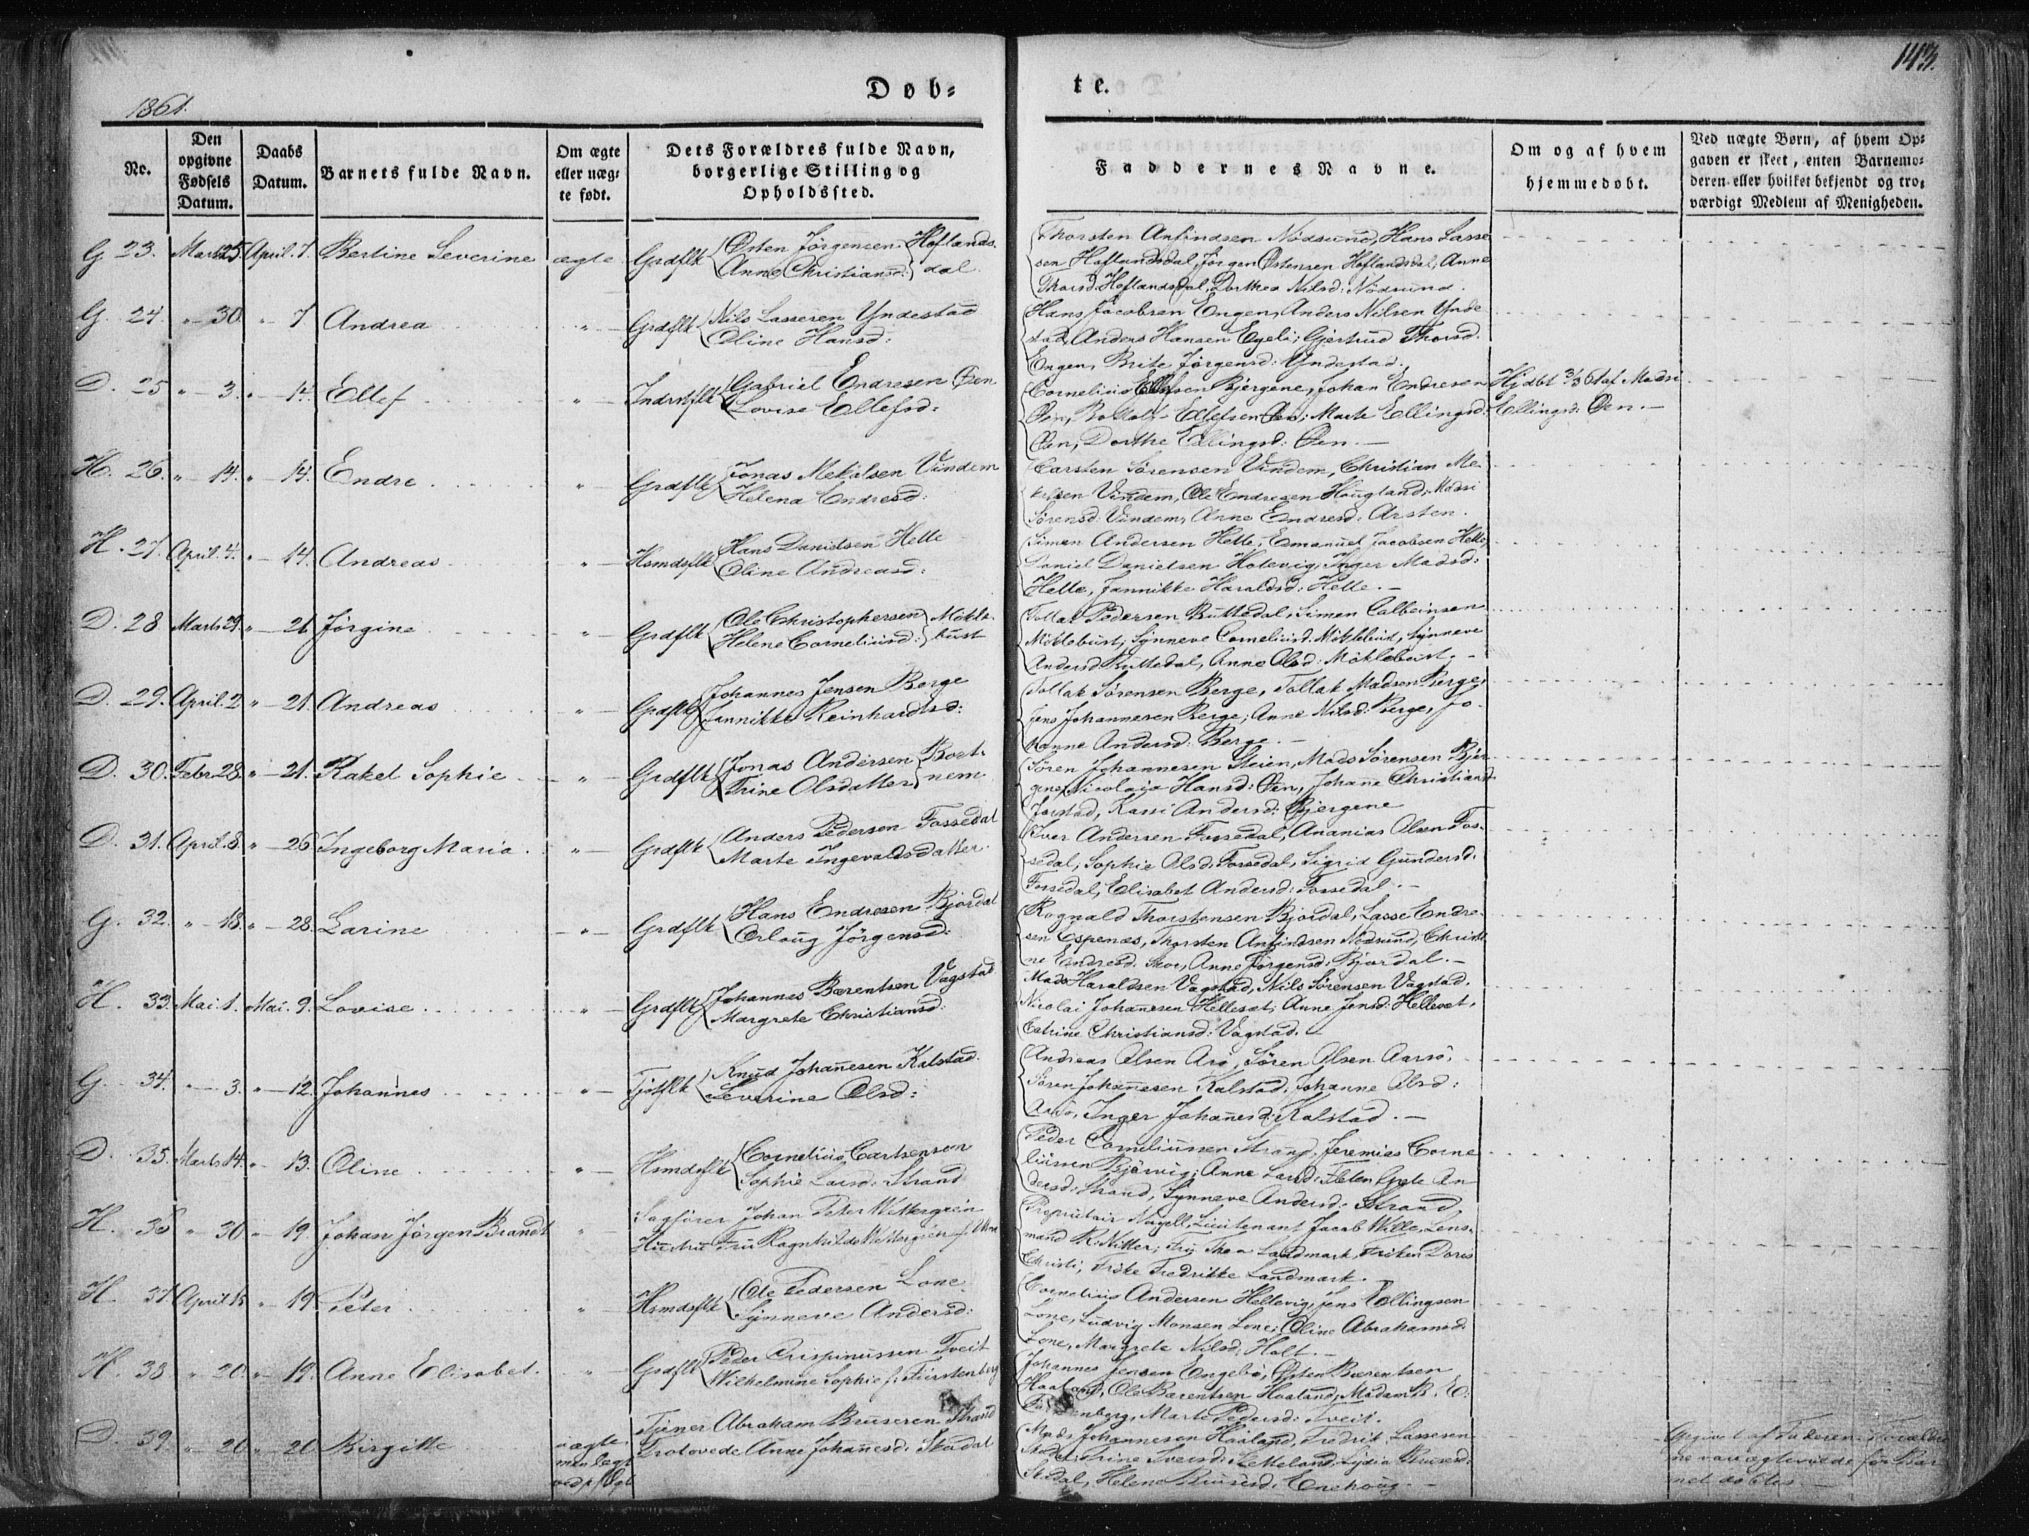 143.
1861.
Døb-
te.
No.
Den opgivne Fødsels Datum.
Daabs Datum.
Barnets fulde Navn.
Om ægte eller uæg-te født.
Dets Forældres fulde Navn, borgerlige Stilling og Opholdssted.
Faddernes Navne.
Om og af hvem hjemmedøbt.
Ved uægte Børn, af hvem Op-gaven er skeet, enten Barnemo-deren eller hvilket bekjendt og tro-værdigt Medlem af Menigheden.
G 23. Marts 25. April. 7. Bertine Severine ægte Grdflk Østen Jørgensen Høflands-
Anne Christiansd: dal.
Thorsten Anfindsen Nødsund, Hans Lasse
sen Høflandsdal, Jørgen Østensen Høflandsdal, Anne
Thorsd: Høflandsdal, Dorthea Nilsd: Nødsund.
G. 24. " 30. " 7 Andrea " Grdflk Nils Lassesen Yndestad
Oline Hansd:
Hans Jacobsen Engen, Anders Nilsen Ynde
stad, Anders Hansen Egeli; Gjertrud Thorsd.
Engen, Brite Jørgensd: Yndestad.
D. 25 " 3. " 14. Ellef " Indrstflk Gabriel Endresen Øen
Lovise Ellefsd:
Cornelius Ellefsen Bjergene, Johan Endresen
Øen, Ellefsen Øen; Marte Ellingsd:
Øen, Dorthe Ellingsd: Øen.
Hjdbt 3/3 61 af Madsi
Ellingsd: Øen.
H. 26. " 14. " 14. Endre " Grdflk Jonas Mekalsen Vindem
Helena Endresd:
Carsten Sørensen Vindem, Christian Me-
kelsen Vindem, Ole Endresen Hougland, Madsi
Sørensd: Vindem, Anne Endresd: Arsten.
H. 27. April. 4. " 14. Andreas " Hsmdsflk Hans Danielsen Helle
Oline Andreasd:
Simon Andersen Helle, Emanuel Jacobsen Helle,
Daniel Danielsen Holevig, Inger Madsd:
Helle, Jannikke Haraldsd: Helle.
D. 28 Marts 29. " 21 Jørgine " Grdflk Ole Christophersen Mökle-
Helene Corneliusd: bust
Tollak Pedersen Buttedal, Simen Colbeinsen
Möklebust; Synneve Corneliusd: Möklebust, Synneve
Andersd Buttedal, Anne Olsd: Möklebust.
D. 29. April. 2 " 21. Andreas " Grdflk Johannes Jensen Berge
Jannikke Reinhardtsd:
Tollak Sørensen Berge, Tollak Madsen Berge,
Jens Johannesen Berge; Anne Nilsd: Berge, Jo-
hanne Andersd: Berge.
D. 30. Febr. 28. " 21. Rakel Sophie " Grdflk Jonas Andersen Boet-
Trine Olsdatter nem
Søren Johannesen Steien, Mads Sørensen Bjer-
gene, Nicolaia Hansd: Øen, Johanne Christiansd:
Jorstad, Kari Andersd: Bjergene
D. 31. April. 8. " 26 Ingeborg Maria " Grdflk Anders Pedersen Fossedal
Marte Ingevaldsdatter
Iver Andersen Fossedal, Ananias Olsen Fos-
sedal, Sophie Olsd: Fossedal, Sigrid Gundersd.
Fossedal, Elisabet Andersd: Fossedal.
G. 32. " 18. " 28. Larine " Grdflk Hans Endresen Bjordal
Orloug Jørgensd:
Rognald Thorstensen Bjordal, Lasse Endre-
sen Espenæs, Thorsten Anfindsen Nødsund, Christi
ne Endresd: Skor, Anne Jørgensd: Bjordal.
H. 33. Mai. 1. Mai. 9. Lovise " Grdflk Johannes Bærentsen Vagstad
Margrete Christiansd:
Mads Haraldsen Vagstad, Nils Sørensen Vagstad,
Nicolai Johannesen Hellesæt; Anne Jensd: Hellesæt,
Catrine Christiansd: Vagstad.
G. 34. " 3. " 12. Johannes " Tjotflk Knud Johanesen Kalstad
Severine Olsd:
Andreas Olsen Arö, Søren Olsen Aarsö,
Søren Johanesen Kalstad; Johanne Olsd:
Arsö, Inger Johanesd: Kalstad.
D. 35. Marts 14. " 13. Oline " Hsmdsflk Cornelius Carlsensen
Sophie Larsd: Strand
Peder Corneliussen Strand, Jeremies Corne
liussen Björvig; Anne Larsd: Fleten, Grete An
dersd: Strand, Synneve Andersd: Strand.
H. 36 " 30. " 19. Johan Jørgen Brandt " Sagfører Johan Peter Wettergrein
Hustru Fru Ragnhilda Wettergrein
Proprietair Nagell, Lieutenant Jacob Wille, Lens-
mand R. Nitter; Fru Thea Landmark, Frøken Doris
Christi, Frøke Fredrikke Landmark.
H. 37. April " 19. Peter " Hsmdsflk Ole Pedersen Lone
Synneve Andersd:
Cornelius Andersen Hellevig, Jens Ellingsen
Lone, Ludvig Monsen Lone; Oline Abrahamsd.
Lone, Margrete Nilsd: Holt.
H. 38. " 20. " 19. Anne Elisabet. " Grdflk Peder Crispinussen Tveit
Wilhelmine Sophie f. Fürstenberg
Johannes Jensen Engebö, Østen Bærentsen
Haaland, Ole Bærentsen Haaland; Madam B. E.
Fürstenberg, Marte Pedersd: Tveit.
D. 39. " 20 " 20. Birgitte uægte Tjener Abraham Brusesen Strand
Anne Johannesd: Skodal
Mads Johannesen Haaland, Fredrik Lassesen
Trine Iversd: Letteland, Lydia Brusesd:
Helene Brusesd: Enehoug.
Opgivet af Faderen. Forældre
ne var ægteviede før Bar
net döbtes.